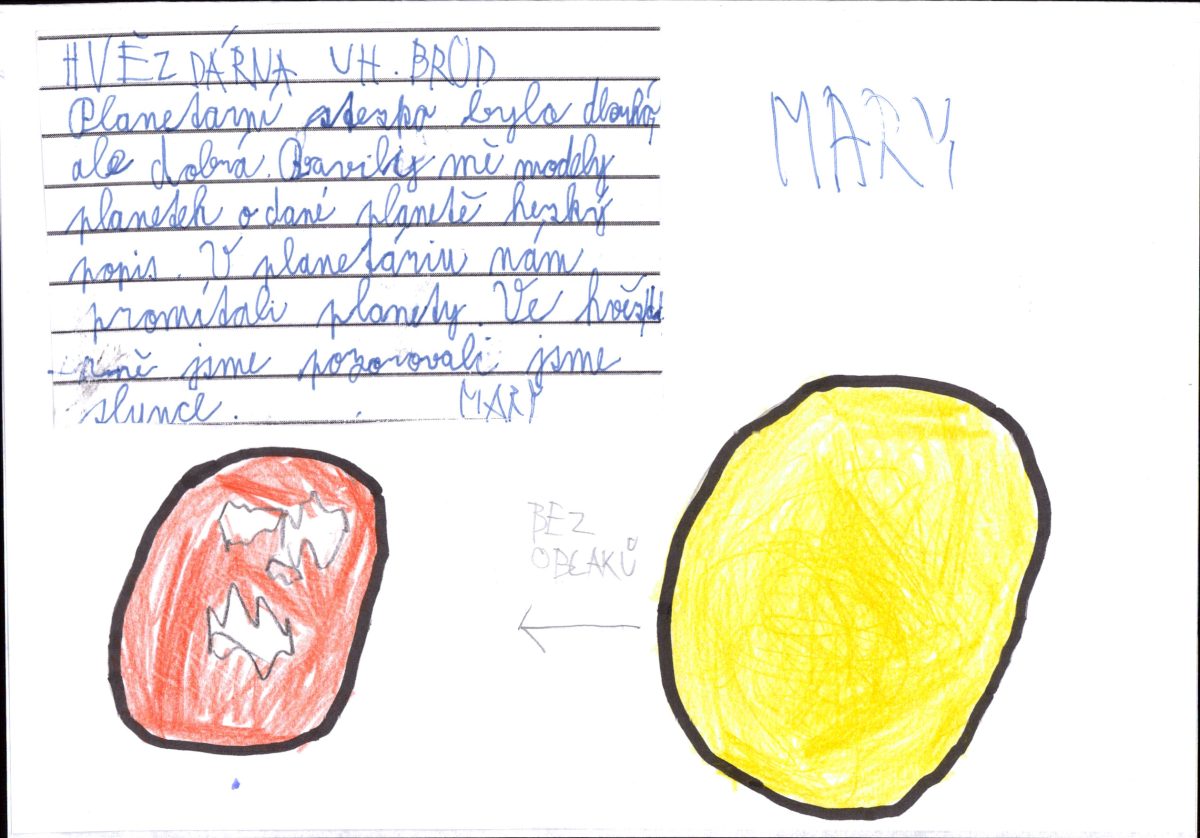 HVĚZDÁRNA UH. BROD
Planetární stezka byla dlouhá,
ale dobrá. Bavily mě modely
planetek o dané planětě hezký
popis. V planetáriu nám
promítali planety. Ve hvězdá
rně jsme pozorovali jsme
slunce. MARY
MARY
BEZ
OBLAKŮ